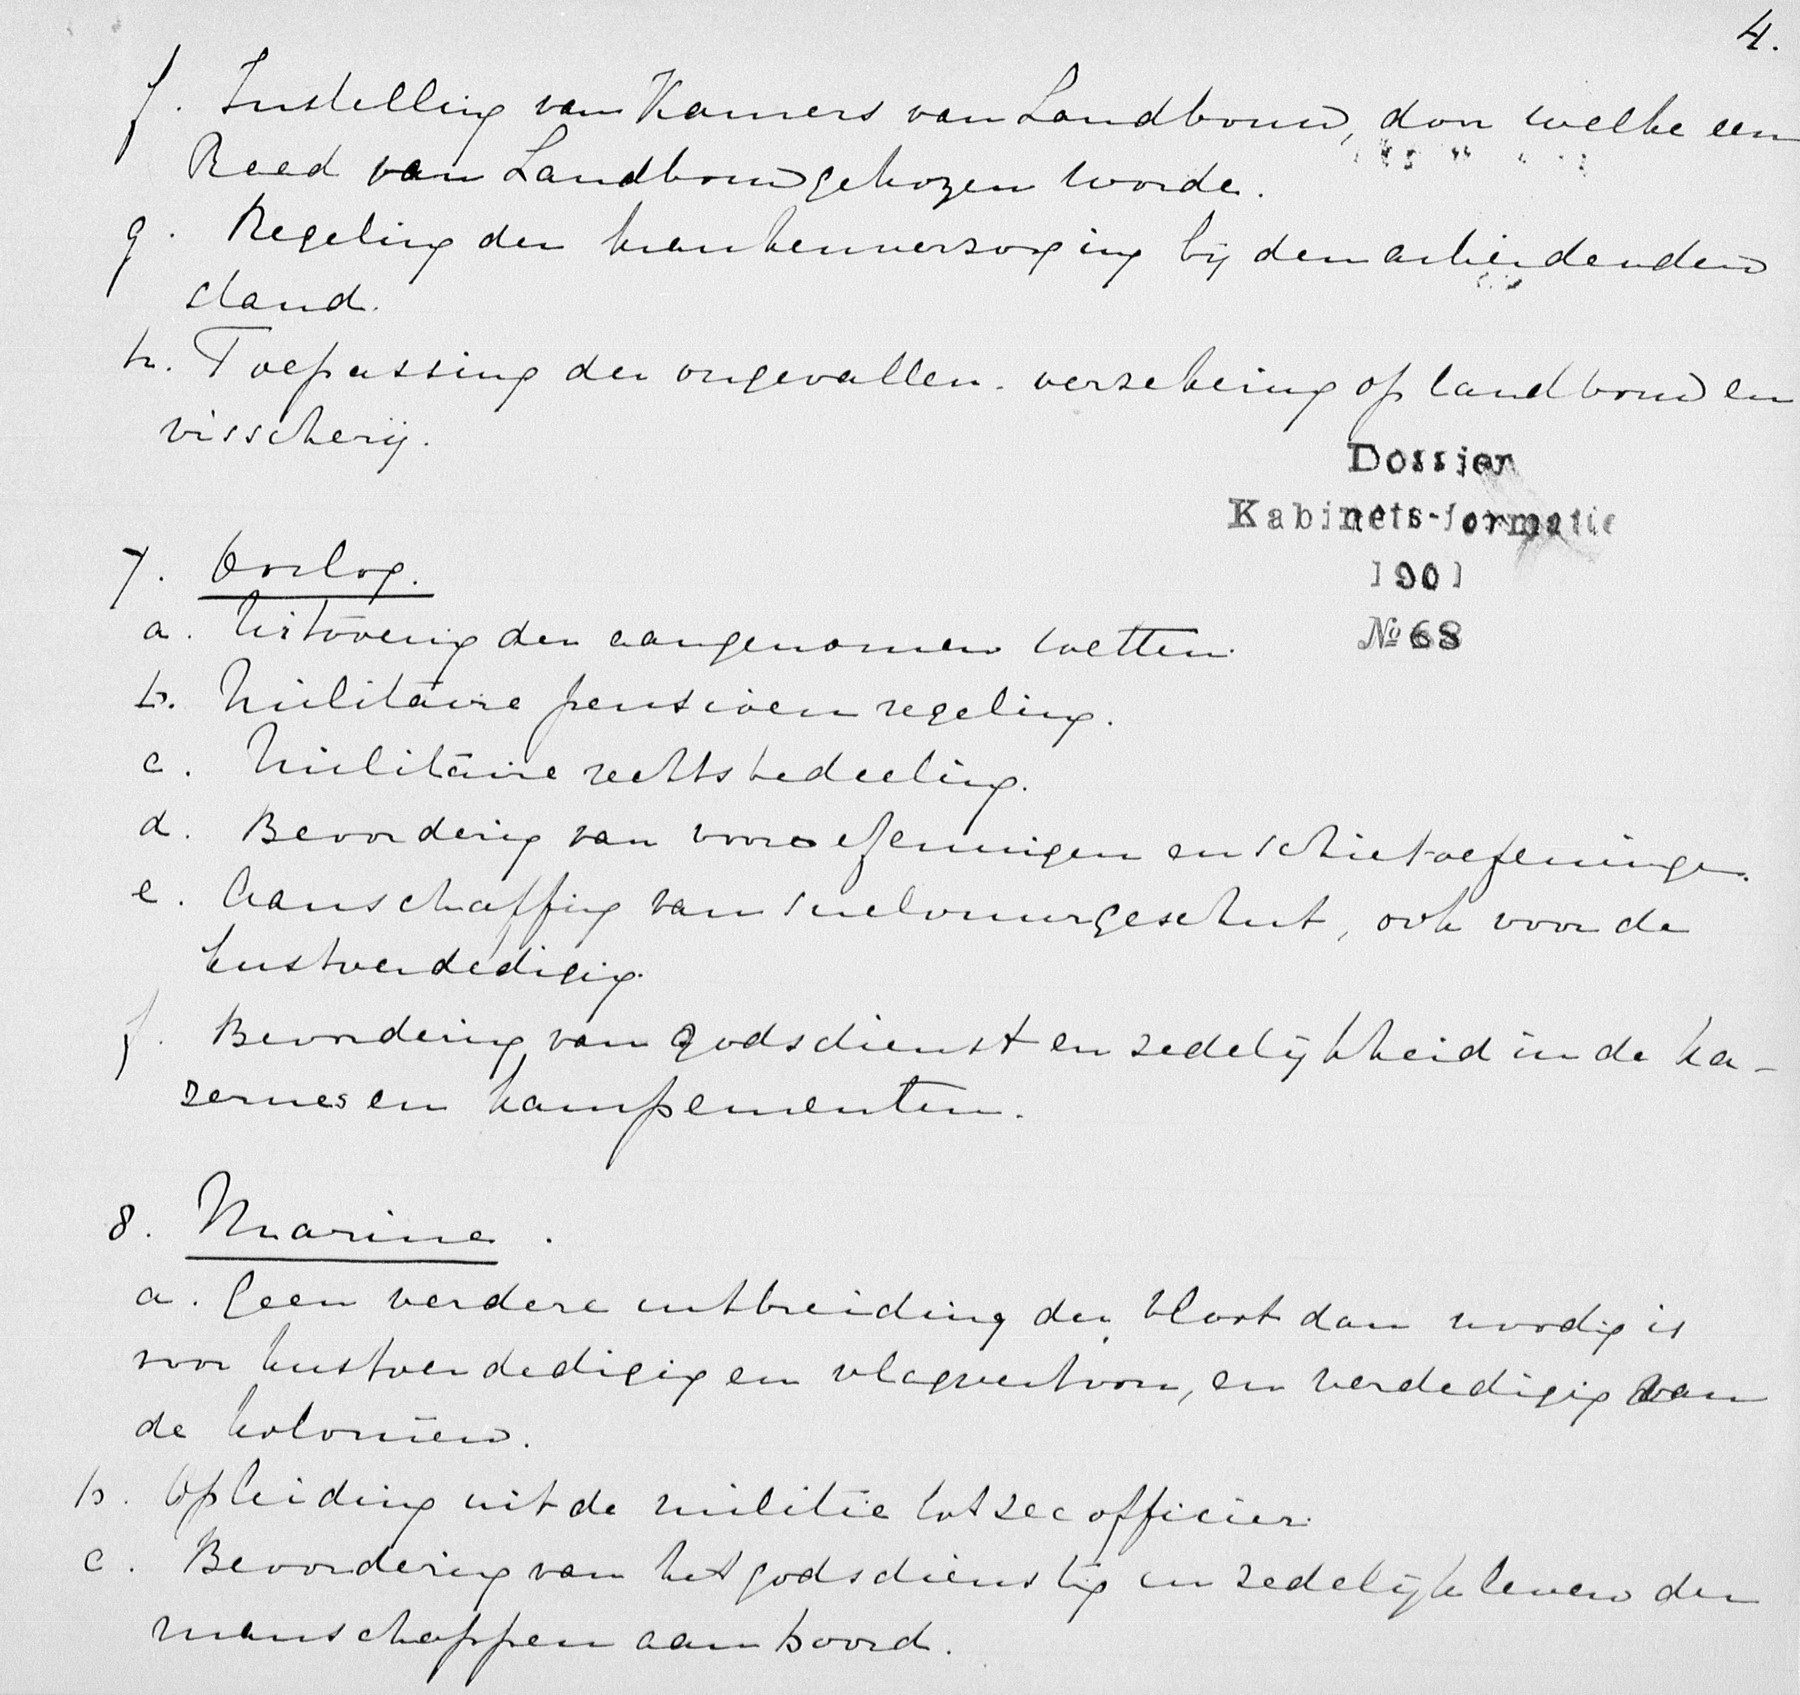 4.
f. Instelling van Kamers van Landbouw, door welke een
Raad van Landbouw gekozen worde.
g. Regeling der krankenverzorging bij den arbeidenden
stand.
h. Toepassing der ongevallen-verzekering op landbouw en
visscherij.
Dossier
Kabinets-formatie
1901
No 68
7. Oorlog.
a. Uitvoering der aangenomen wetten.
b. Militaire pensioen regeling.
c. Militaire rechtsbedeeling.
d. Bevordering van vooroefeningen en schietoefeningen.
e. Aanschaffing van snelvuurgeschut, ook voor de
kustverdediging.
f. Bevordering van godsdienst en zedelijkheid in de ka-
zernes en kampementen.
8. Marine.
a. Geen verdere uitbreiding der vloot dan noodig is
voor kustverdediging en vlagvertoon, en verdediging van
de koloniën.
b. Opleiding uit de militie tot zeeofficier.
c. Bevordering van het godsdienstig en zedelijk leven der
manschappen aan boord.